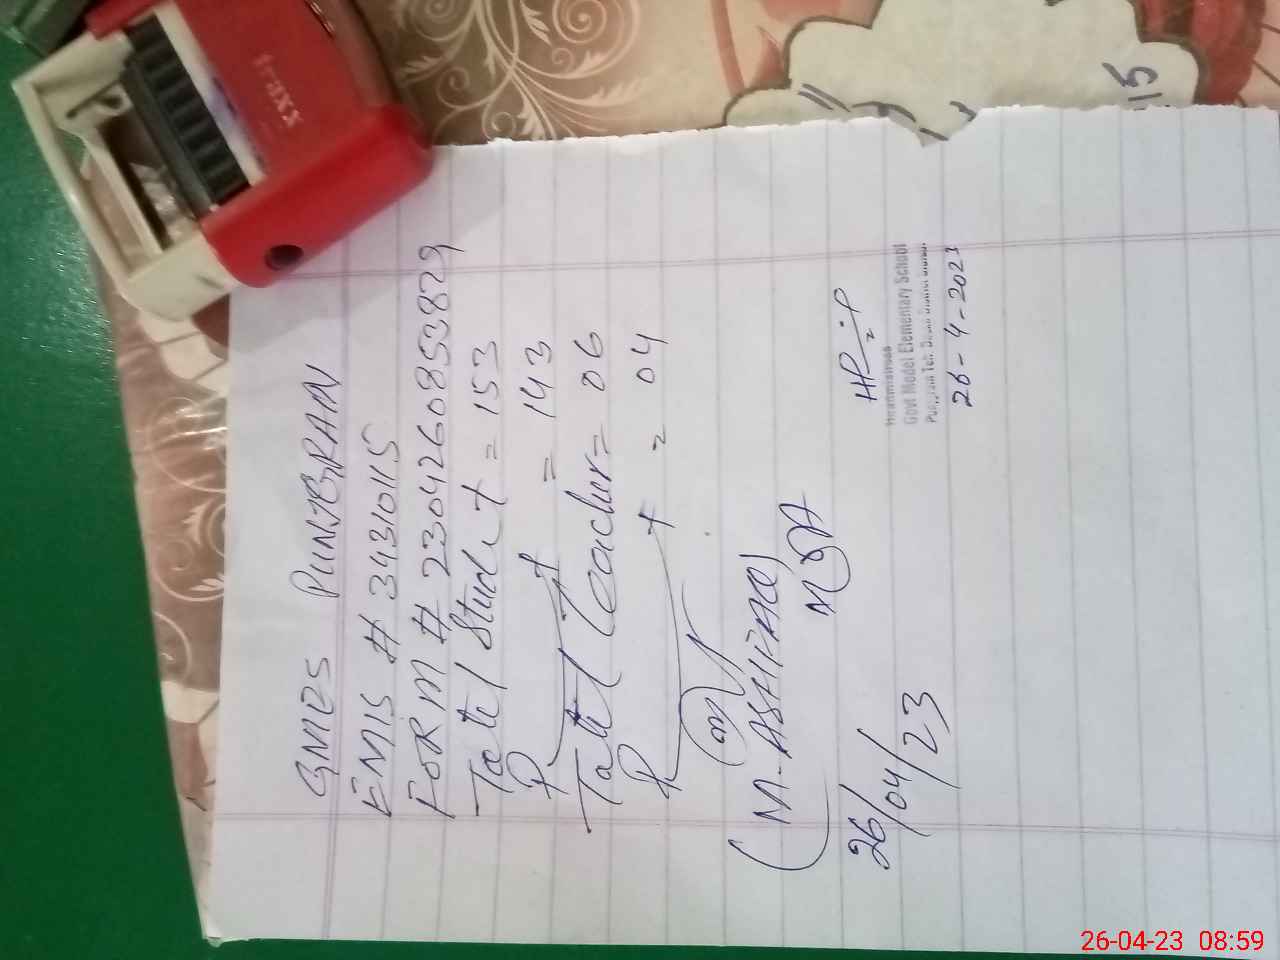 GMES PUNJGRAIN
EMIS # 34310115
FORM # 2304260853829
Total Student = 153
P = 143
Total Teacher = 06
P = 04
(M. ASHFAQ)
MEA
26/04/23
Headmistress
Govt Model Elementary School
26-4-2023
traxx
15
26-04-23 08:59